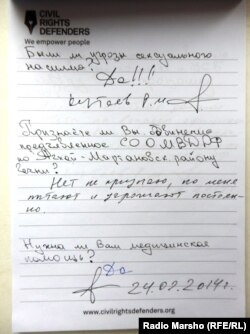 CIVIL
RIGHTS
DEFENDERS
We empower people
Были ли угрозы сексуального
насилия?
Да!!!
Кутаев Р.М
Признаёте ли Вы обвинение
предъявленное СО ОМВД РФ
по Ачхой-Мартановск. району
Чечни?
Нет не признаю, но меня
пытают и угрожают постоян-
но.
Нужна ли Вам медицинская
помощь?
Да
24.02.2014г.
www.civilrightsdefenders.org
Radio Marsho (RFE/RL)